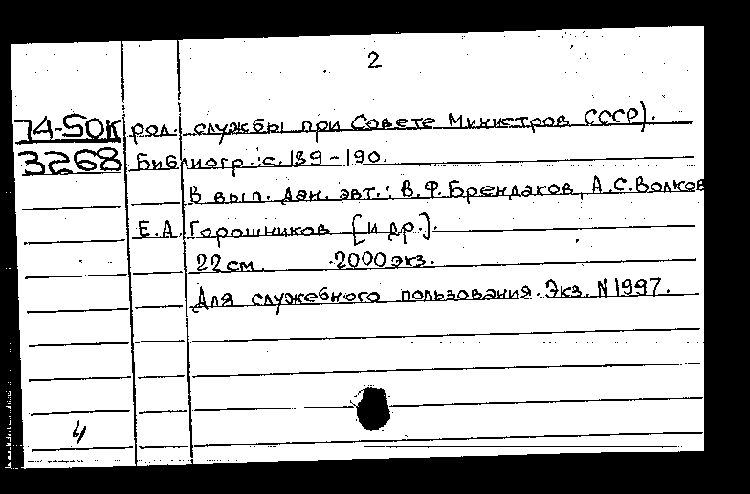 2
74-50К рол. службы при Совете Министров СССР).
3268 Библиогр.: с. 189-190.
В вып. дан. авт.: В.Ф. Брендаков, А.С. Волков
Е.А. Горошников [и др.].
22 см. 2000 экз.
Для служебного пользования. Экз. N 1997.
4